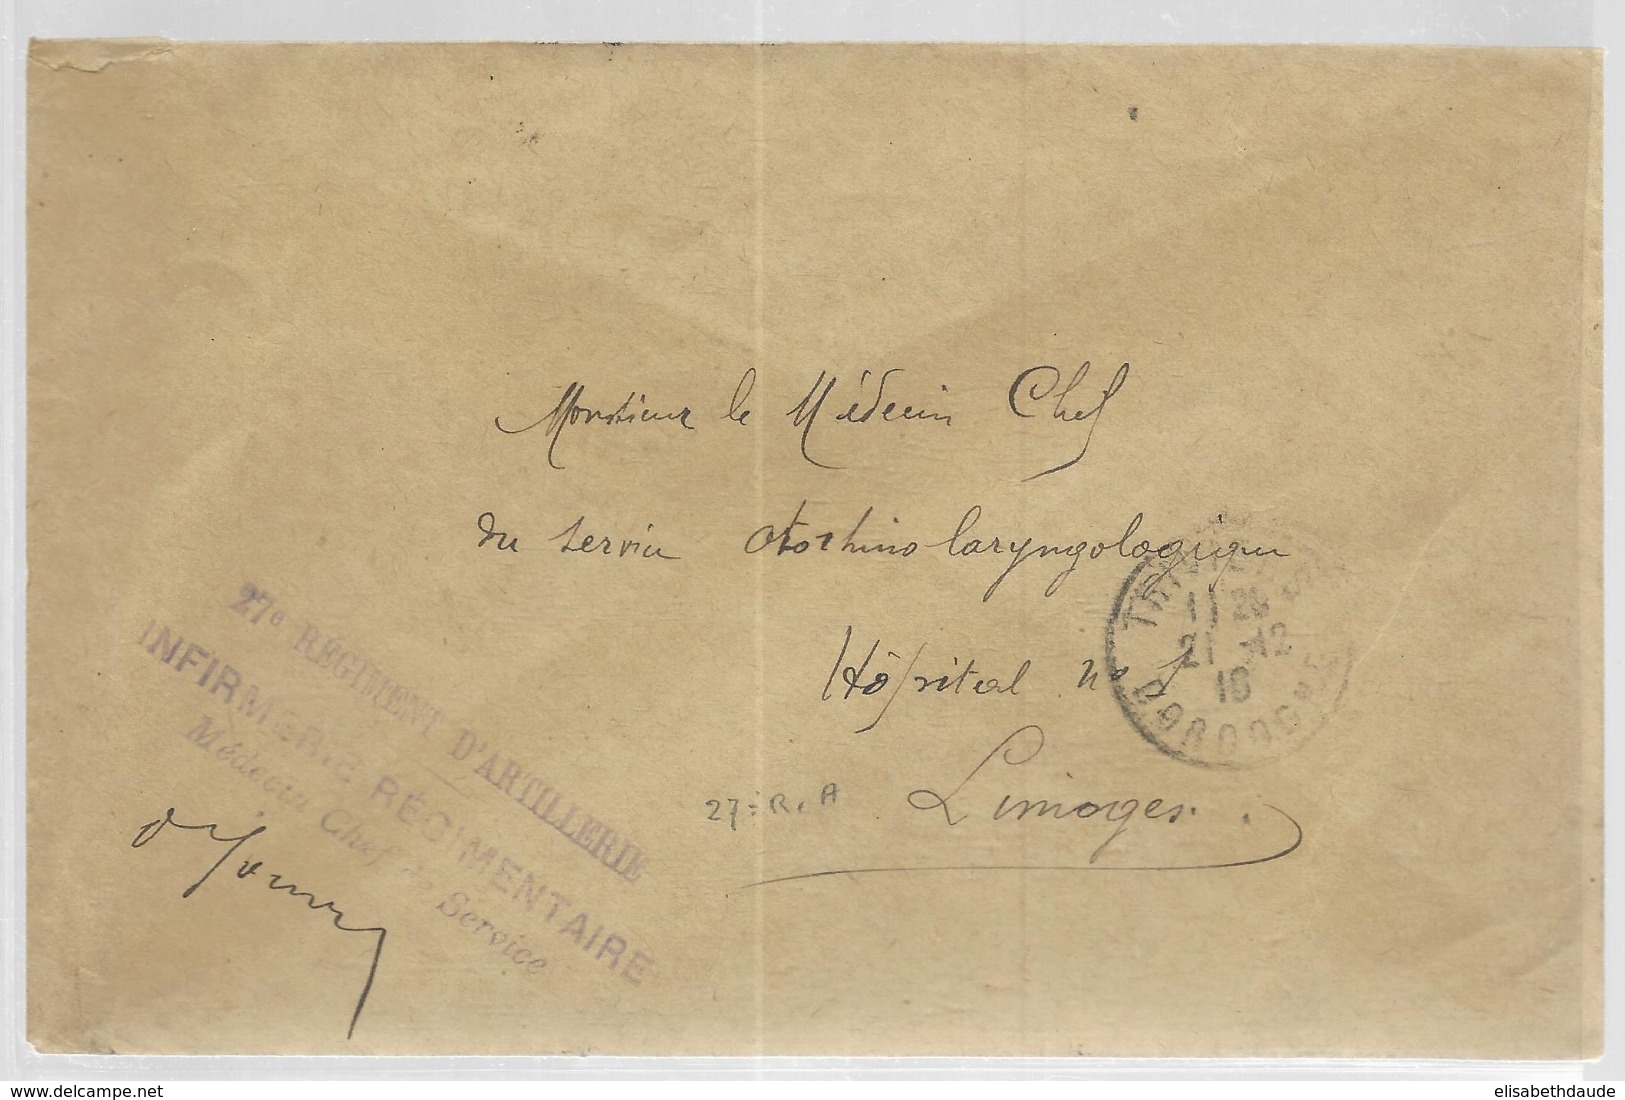 Monsieur le Médecin Chef
du service Otorhino laryngologique
Hôpital no 1
Limoges.
27e R. A
27e RÉGIMENT D'ARTILLERIE
INFIRMERIE RÉGIMENTAIRE
Médecin Chef de Service
THIVIERS
11 20
21 -12
16
DORDOGNE
delcampe.net
elisabethdaude